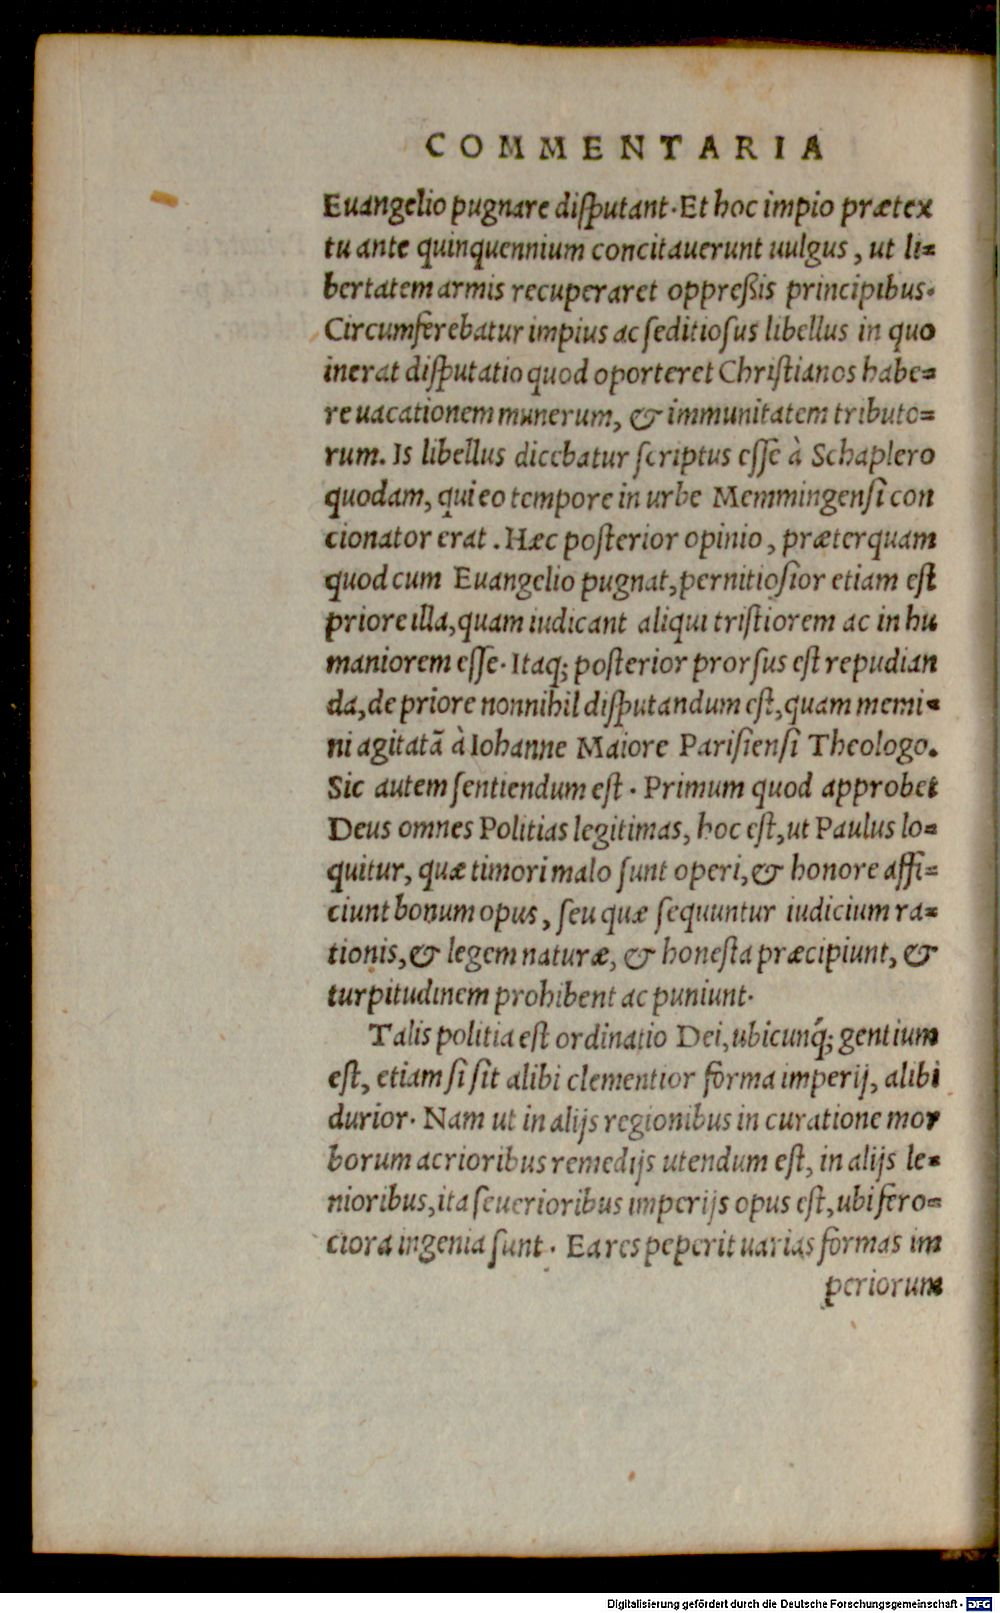 COMMENTARIA
Euangelio pugnare disputant. Et hoc impio prætex
tu ante quinquennium concitauerunt uulgus, ut li-
bertatem armis recuperaret oppreßis principibus.
Circumferebatur impius ac seditiosus libellus in quo
inerat disputatio quod oporteret Christianos habe-
re uacationem munerum, & immunitatem tributo-
rum. Is libellus dicebatur scriptus esse à Schaplero
quodam, qui eo tempore in urbe Memmingensi con
cionator erat. Hæc posterior opinio, præterquam
quod cum Euangelio pugnat, pernitiosior etiam est
priore illa, quam iudicant aliqui tristiorem ac inhu
maniorem esse. Itaq; posterior prorsus est repudian
da, de priore nonnihil disputandum est, quam memi-
ni agitatã à Iohanne Maiore Parisiensi Theologo.
Sic autem sentiendum est. Primum quod approbet
Deus omnes Politias legitimas, hoc est, ut Paulus lo-
quitur, quæ timori malo sunt operi, & honore affi-
ciunt bonum opus, seu quæ sequuntur iudicium ra-
tionis, & legem naturæ, & honesta præcipiunt, &
turpitudinem prohibent ac puniunt.
Talis politia est ordinatio Dei, ubicunq́; gentium
est, etiam si sit alibi clementior forma imperij, alibi
durior. Nam ut in alijs regionibus in curatione mor
borum acrioribus remedijs utendum est, in alijs le-
nioribus, ita seuerioribus imperijs opus est, ubi fero-
ciora ingenia sunt. Ea res peperit uarias formas im
periorum
Digitalisierung gefördert durch die Deutsche Forschungsgemeinschaft - DFG